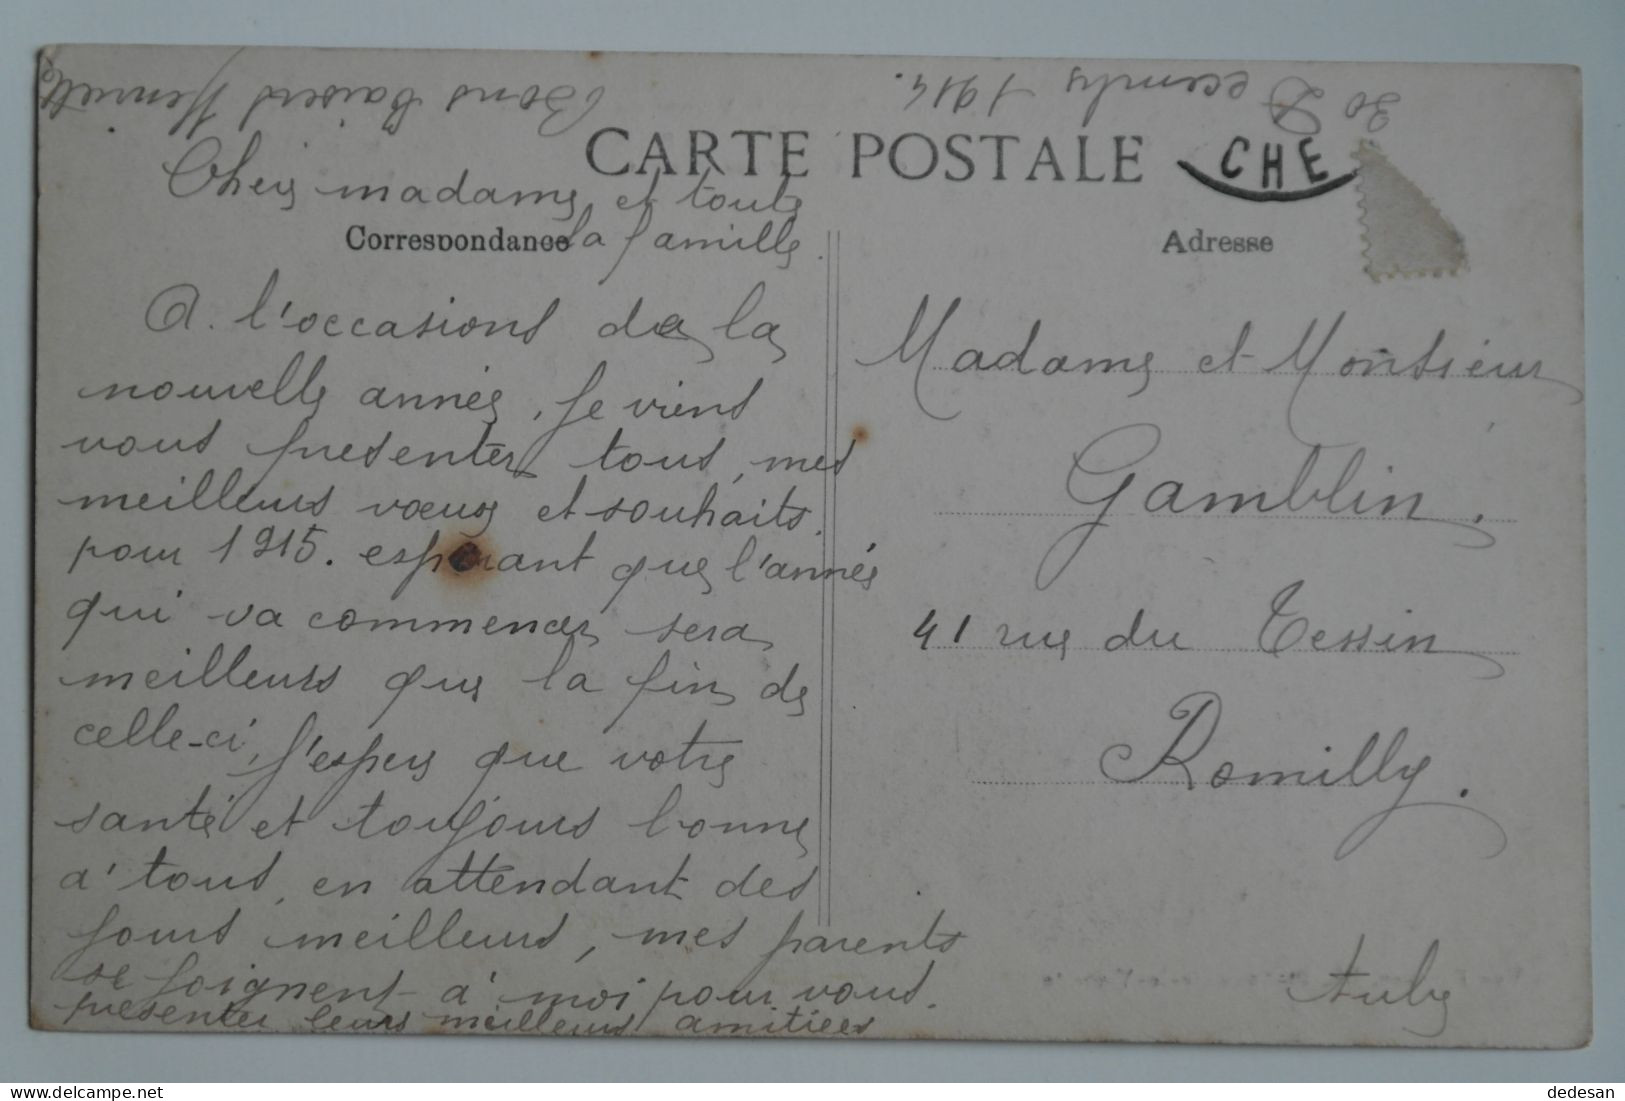 30 Decembre 1914.
Bons baisers Henriette
CARTE POSTALE
CHE
Correspondance
Adresse
Chers madame et toute
la famille.
A. l'occasions de la
nouvelle année, je viens
vous presenter tous, mes
meilleurs vœux et souhaits
pour 1915. esperant que l'année
qui va commencer sera
meilleurs que la fin de
celle-ci, J'espere que votre
santé et toujours bonne
a' tous, en attendant des
jours meilleurs, mes parents
se joignent à moi pour vous.
presenter leurs meilleurs amitiees
Madame et Monsieur
Gamblin.
41 rue du Tessin
Romilly.
Aube
dedesan